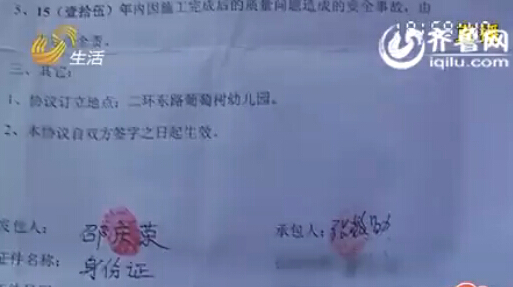 3、15（壹拾伍）年内因施工完成后的质量问题造成的安全事故，由
全责。
生活
齐鲁网
iqilu.com
三、其它：
1、协议订立地点：二环东路葡萄树幼儿园。
2、本协议自双方签字之日起生效。
发包人：邵庆荣
承包人：张
证件名称：身份证